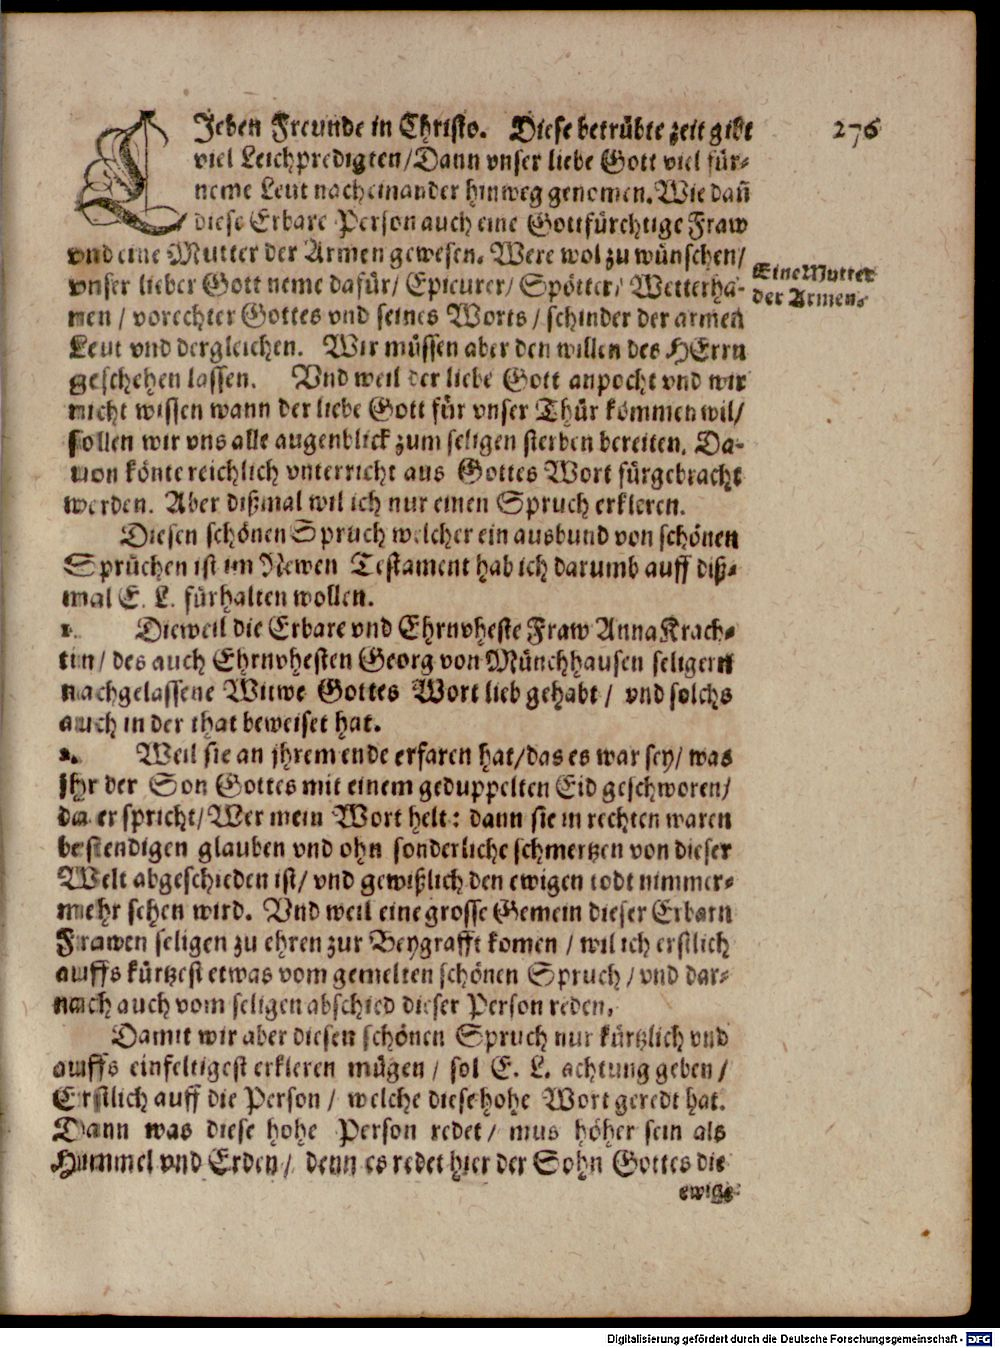 LIeben Freunde in Christo. Diese betrübte zeit gibt
276
viel Leichpredigten/Dann vnser liebe Gott viel für-
neme Leut nacheinander hinweg genomen. Wie dañ
diese Erbare Person auch eine Gottfürchtige Fraw
vnd eine Mutter der Armen gewesen. Were wol zu wünschen/
Eine Mutter
der Armen.
vnser lieber Gott neme dafür/ Epicurer/ Spötter/ Wetterha-
nen / vorechter Gottes vnd seines Worts / schinder der armen
Leut vnd dergleichen. Wir müssen aber den willen des HErrn
geschehen lassen. Vnd weil der liebe Gott anpocht vnd wir
nicht wissen wann der liebe Gott für vnser Thür kommen wil/
sollen wir vns alle augenblick zum seligen sterben bereiten. Da-
uon könte reichlich vnterricht aus Gottes Wort fürgebracht
werden. Aber dißmal wil ich nur einen Spruch erkleren.
Diesen schönen Spruch welcher ein ausbund von schönen
Sprüchen ist im Newen Testament hab ich darumb auff diß-
mal E. L. fürhalten wollen.
1. Dieweil die Erbare vnd Ehrnvheste Fraw Anna Krach-
tin/ des auch Ehrnvhesten Georg von Münchhausen seligern
nachgelassene Witwe Gottes Wort lieb gehabt / vnd solchs
auch in der that beweiset hat.
2. Weil sie an jhrem ende erfaren hat/das es war sey/ was
jhr der Son Gottes mit einem geduppelten Eid geschworen/
da er spricht/ Wer mein Wort helt: dann sie in rechten waren
bestendigen glauben vnd ohn sonderliche schmertzen von dieser
Welt abgeschieden ist/ vnd gewißlich den ewigen todt nimmer-
mehr sehen wird. Vnd weil eine grosse Gemein dieser Erbarn
Frawen seligen zu ehren zur Beygrafft komen / wil ich erstlich
auffs kürtzest etwas vom gemelten schönen Spruch / vnd dar-
nach auch vom seligen abschied dieser Person reden.
Damit wir aber diesen schönen Spruch nur kürtzlich vnd
auffs einfeltigest erkleren mügen / sol E. L. achtung geben /
Erstlich auff die Person / welche diese hohe Wort geredt hat.
Dann was diese hohe Person redet / mus höher sein als
Himmel vnd Erden / denn es redet hier der Sohn Gottes die
ewige
Digitalisierung gefördert durch die Deutsche Forschungsgemeinschaft - DFG